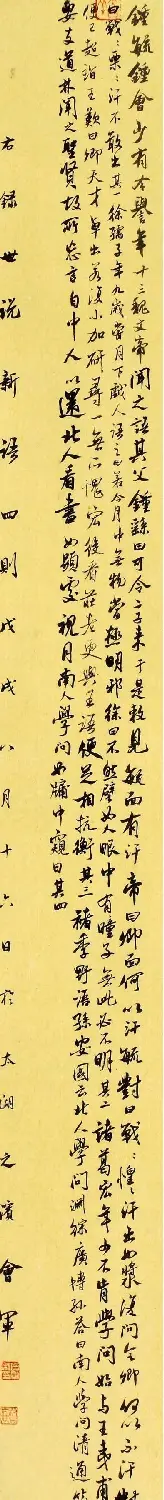 鍾毓鍾會少有令譽年十三魏文帝聞之語其父鍾繇曰可令二子來于是敕見毓面有汗帝曰卿面何以汗毓對曰戰〻惶〻汗出如漿復問會卿何以不汗對
曰戰〻栗〻汗不敢出其一徐孺子年九歲嘗月下戲人語之曰若令月中無物當極明邪徐曰不然譬如人眼中有瞳子無此必不明其二諸葛宏年少不肯學問始與王夷甫
便已超詣王歎曰卿天才卓出若復小加研尋一無所愧宏後看莊老更與王語便足相抗衡其三褚季野語孫安國云北人學問淵綜廣博孫答曰南人學問清通簡
要支道林聞之曰聖賢故所忘言自中人以還北人看書如顯處視月南人學問如牖中窺日其四
右錄世說新語四則戊戌八月十六日於太湖之濱會軍